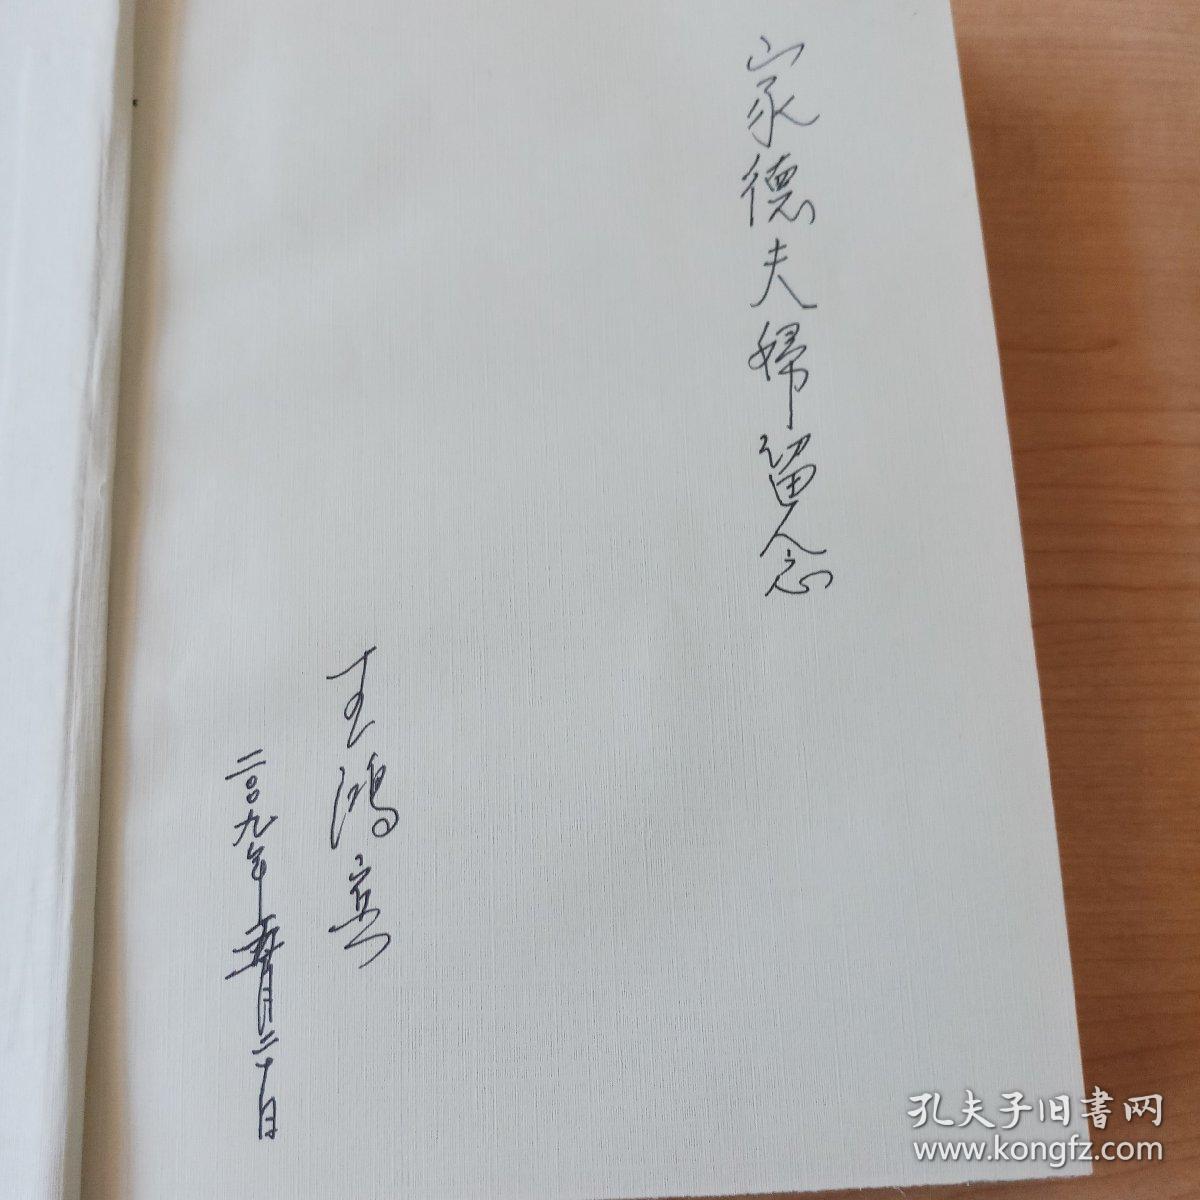 家德夫婦留念
王鴻賓
二〇〇九年五月二十日
孔夫子旧書网
www.kongfz.com